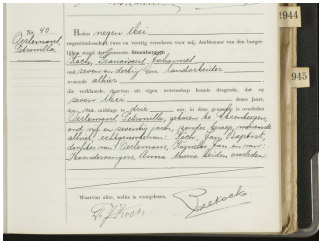 1944
945
No. 40
Oerlemans,
Petronilla.
Heden negen Mei
negentienhonderd twee en veertig verscheen voor mij, Ambtenaar van den burger-
lijken stand der gemeente Steenbergen:
Koch, Franciscus Johannes
oud zeven en dertig jaar, landarbeider
wonende alhier
die verklaarde, daarvan uit eigen wetenschap kennis dragende, dat op
zeven Mei dezes jaars,
des na middags te drie uur, in deze gemeente is overleden:
Oerlemans Petronilla, geboren te Steenbergen,
oud vijf en zeventig jaren, zonder beroep, wonende
alhier, echtgenoote van Koch, Jan Baptist,
dochter van Oerlemans, Cornelis Jan en van
Anna Maria, beiden overleden
Waarvan akte, welke is voorgelezen.